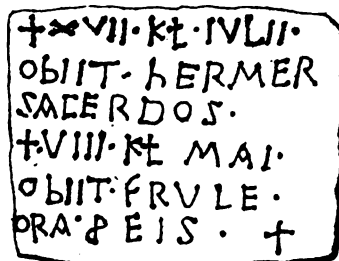 + XVII · KŁ · IVLII ·
ObIIT · hERMER
SACERDOS ·
+ · VIII · KŁ MAI ·
ObIIT · FRVLE ·
ORA · P EIS · +